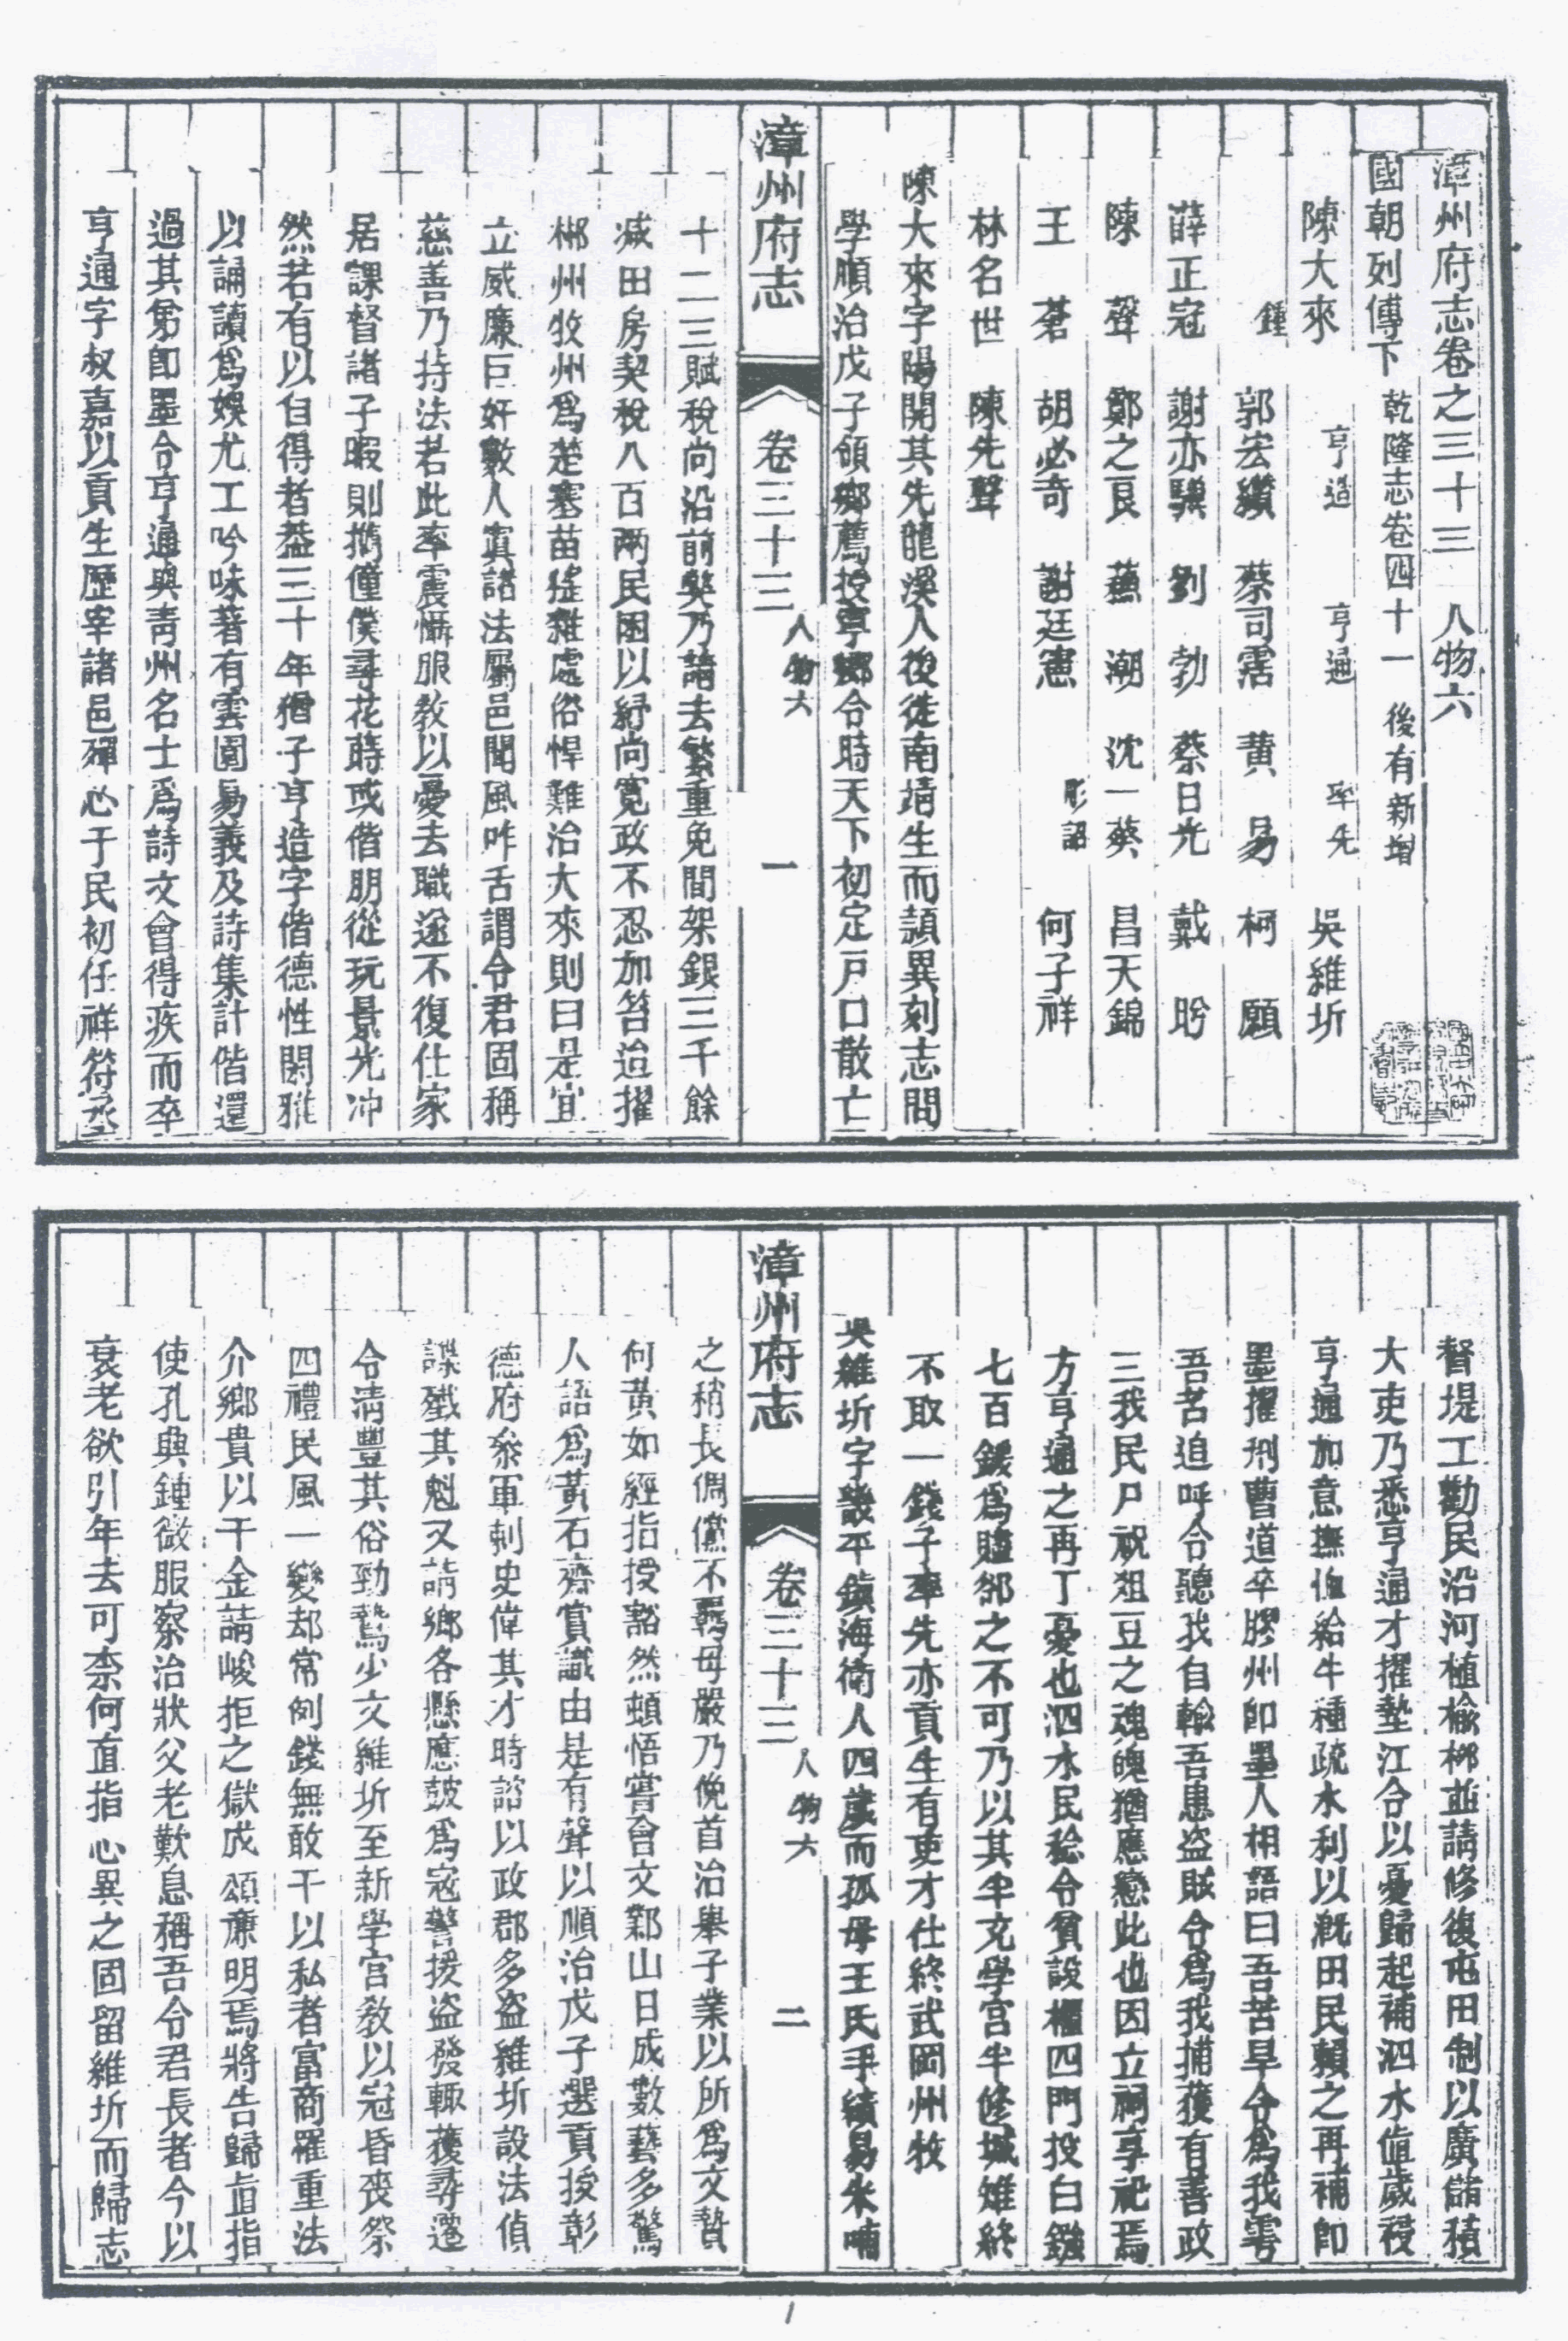 漳州府志卷之三十三　人物六
國朝列傳下　乾隆志卷四十一　後有新增
陳大來　亨造　亨通　率先　吳維圻
鍾　郭宏纘　蔡司霑　黃　易　柯　願
薛正冠　謝亦驥　劉　勃　蔡日光　戴　昐
陳　聲　鄭之艮　蘓　潮　沈一葵　昌天錦
王　蒼　胡必奇　謝廷憲　彤詔　何子祥
林名世　陳先聲
陳大來字陽開其先龍溪人後徙南靖生而頴異刻志問
學順治戊子領鄉薦授寧鄉令時天下初定戶口散亡
漳州府志　卷三十三　人物六　一
十二三賦稅尚沿前獘乃請去繁重免間架銀三千餘
減田房契稅八百兩民困以紓尚寬政不忍加笞迨擢
郴州牧州爲楚塞苗猺雜處俗悍難治大來則曰是宜
立威廉巨奸數人寘諸法屬邑聞風咋舌謂令君固稱
慈善乃持法若此率震慴服教以憂去職遂不復仕家
居課督諸子暇則攜僮僕尋花蒔或偕朋從玩景光冲
然若有以自得者葢三十年猶子亨造字偕德性閑雅
以誦讀爲娛尤工吟咏著有雲圃易義及詩集計偕還
過其弟卽墨令亨通與靑州名士爲詩文會得疾而卒
亨通字叔嘉以貢生歷宰諸邑殫心于民初任祥符丞
督堤工勸民沿河植榆桞並請修復屯田制以廣儲積
大吏乃悉亨通才擢墊江令以憂歸起補泗水值歲祲
亨通加意撫恤給牛種疏水利以漑田民賴之再補卽
墨擢刑曹道卒膠州卽墨人相語曰吾苦旱令爲我雩
吾苦追呼令聽我自輸吾患盜賊令爲我捕獲有善政
三我民尸祝俎豆之魂魄猶應戀此也因立祠享祀焉
方亨通之再丁憂也泗水民稔令貧設櫃四門投白鏹
七百鍰爲贐郤之不可乃以其半充學宮半修城雉終
不取一錢子率先亦貢生有吏才仕終武岡州牧
吳維圻字畿平鎭海衛人四歲而孤母王氏手績易米哺
漳州府志　卷三十三　人物六　二
之稍長倜儻不羈母嚴乃俛首治舉子業以所爲文贄
何黃如經指授豁然頓悟嘗會文鄴山日成數藝多驚
人語爲黃石齋賞識由是有聲以順治戊子選貢授彰
德府叅軍刺史偉其才時諮以政郡多盜維圻設法偵
諜殲其魁又請鄉各懸應鼓爲寇警援盜發輒獲尋遷
令淸豐其俗勁鷙少文維圻至新學宮教以冠昏喪祭
四禮民風一變却常例錢無敢干以私者富商罹重法
介鄉貴以千金請峻拒之獄成頌亷明焉將告歸直指
使孔典鍾微服察治狀父老歎息稱吾令君長者今以
衰老欲引年去可柰何直指心異之固留維圻而歸志